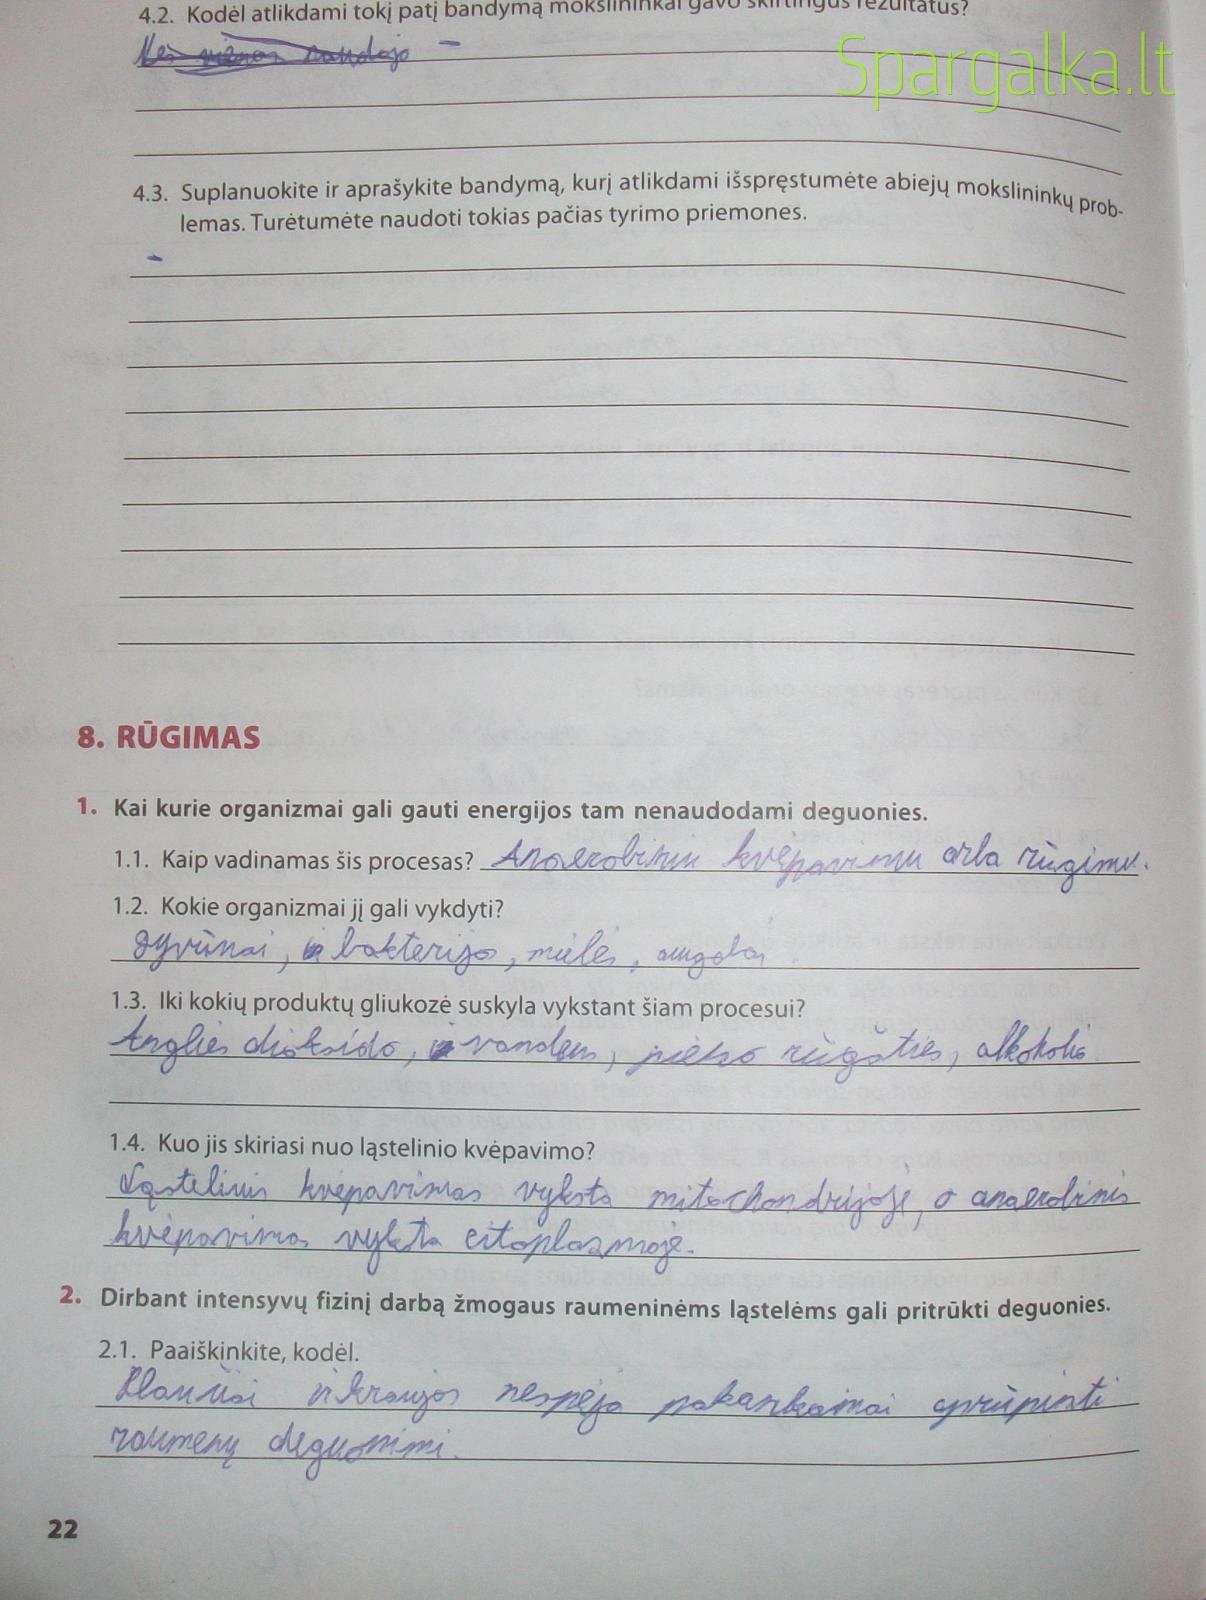 4.2. Kodėl atlikdami tokį patį bandymą mokslininkai gavo skirtingus rezultatus?
Spargalka.lt
Nes vienas naudojo –
4.3. Suplanuokite ir aprašykite bandymą, kurį atlikdami išspręstumėte abiejų mokslininkų prob-
lemas. Turėtumėte naudoti tokias pačias tyrimo priemones.
–
8. RŪGIMAS
1. Kai kurie organizmai gali gauti energijos tam nenaudodami deguonies.
1.1. Kaip vadinamas šis procesas? Anaerobiniu kvėpavimu arba rūgimu.
1.2. Kokie organizmai jį gali vykdyti?
gyvūnai, bakterijos, mielės, augalai.
1.3. Iki kokių produktų gliukozė suskyla vykstant šiam procesui?
Anglies dioksido, vandens, pieno rūgšties, alkoholio.
1.4. Kuo jis skiriasi nuo ląstelinio kvėpavimo?
Ląstelinis kvėpavimas vyksta mitochondrijoje, o anaerobinis
kvėpavimas vyksta citoplazmoje.
2. Dirbant intensyvų fizinį darbą žmogaus raumeninėms ląstelėms gali pritrūkti deguonies.
2.1. Paaiškinkite, kodėl.
Plaučiai ir kraujas nespėja pakankamai aprūpinti
raumenų deguonimi.
22